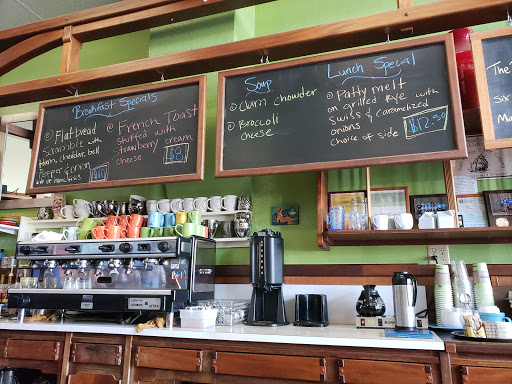 Breakfast Specials
Flatbread
Scramble with
Ham, cheddar, bell
Pepper & onion
French Toast
stuffed with
strawberry cream
cheese
$8
Soup
Clam Chowder
Broccoli
cheese
Lunch Special
Patty melt
on grilled Rye with
Swiss & caramelized
onions
choice of side
$12.50
The